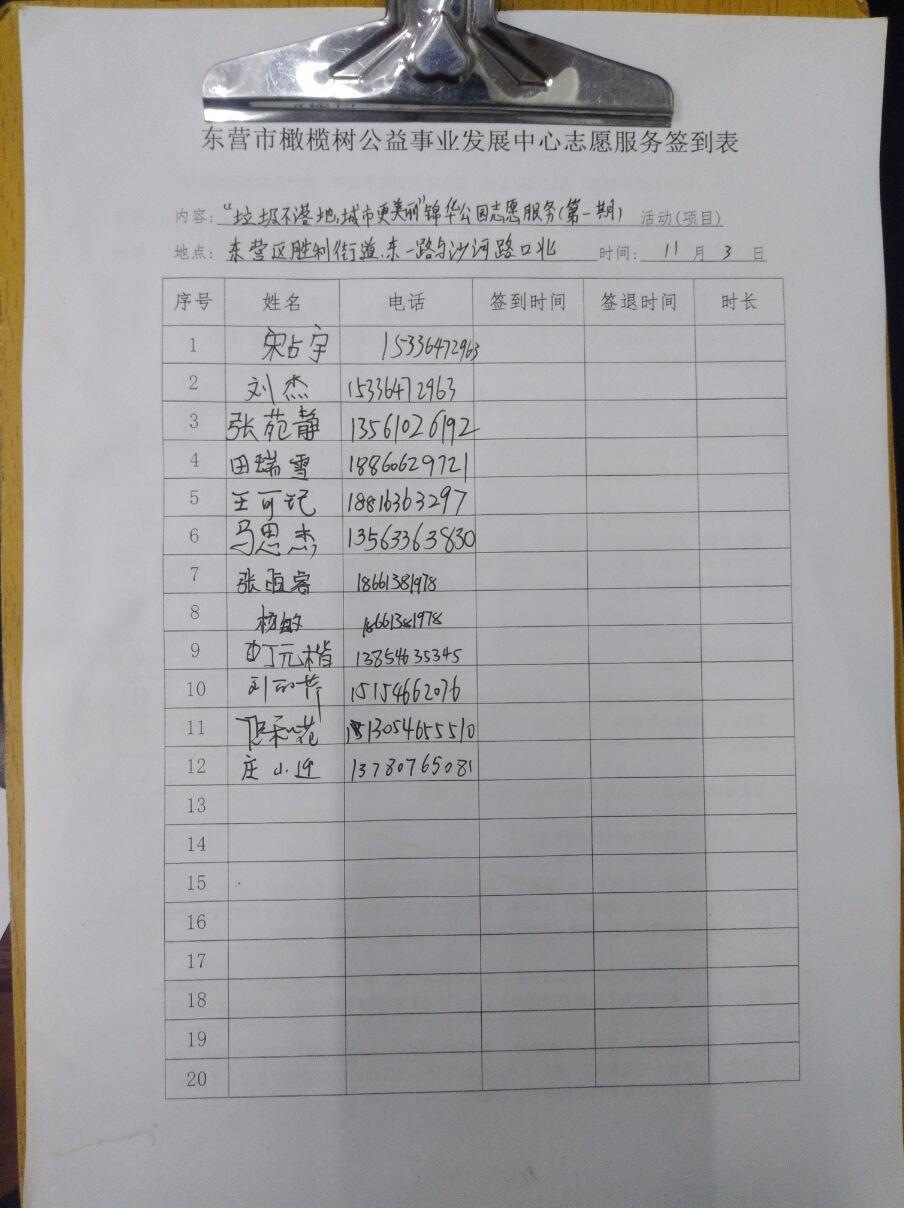 东营市橄榄树公益事业发展中心志愿服务签到表
内容:“垃圾不落地,城市更美丽”锦华公园志愿服务(第一期) 活动(项目)
地点: 东营区胜利街道,东一路与沙河路口北 时间: 11 月 3 日
序号 姓名 电话 签到时间 签退时间 时长
1 宋占宇 15336472963
2 刘杰 15336472963
3 张苑静 13561026192
4 田瑞雪 18860629721
5 王可 18816363297
6 马思杰 13563363830
7 张 睿 18661381978
8 敏 18661381978
9 丁元楷 13854635345
10 刘 15154662076
11 和花 13054655510
12 庄小 13780765081
13
14
15
16
17
18
19
20